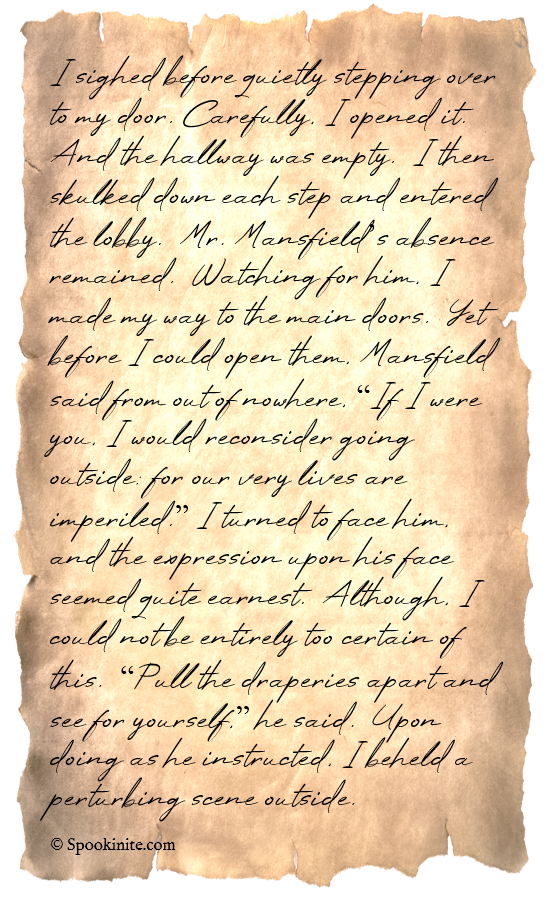 I sighed before quietly stepping over
to my door. Carefully, I opened it.
And the hallway was empty. I then
skulked down each step and entered
the lobby. Mr. Mansfield's absence
remained. Watching for him, I
made my way to the main doors. Yet
before I could open them, Mansfield
said from out of nowhere, “If I were
you, I would reconsider going
outside; for our very lives are
imperiled.” I turned to face him,
and the expression upon his face
seemed quite earnest. Although, I
could not be entirely too certain of
this. “Pull the draperies apart and
see for yourself,” he said. Upon
doing as he instructed, I beheld a
perturbing scene outside.
© Spookinite.com